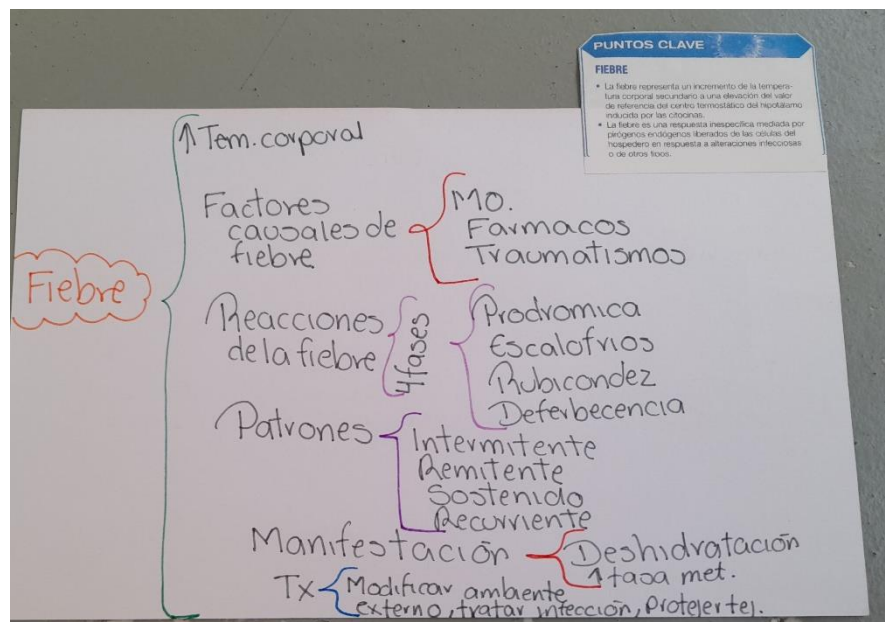 PUNTOS CLAVE
FIEBRE
• La fiebre representa un incremento de la tempera-
tura corporal secundario a una elevación del valor
de referencia del centro termostático del hipotálamo
inducida por las citocinas.
• La fiebre es una respuesta inespecífica mediada por
pirógenos endógenos liberados de las células del
hospedero en respuesta a alteraciones infecciosas
o de otros tipos.
Fiebre
↑ Tem. corporal
Factores
causales de
fiebre
MO.
Farmacos
Traumatismos
Reacciones
de la fiebre
4 fases
Prodromica
Escalofrios
Rubicondez
Deferbecencia
Patrones
Intermitente
Remitente
Sostenido
Recurriente
Manifestación
Deshidratación
↑ tasa met.
Tx
Modificar ambiente
externo, tratar infección, Protejer tej.